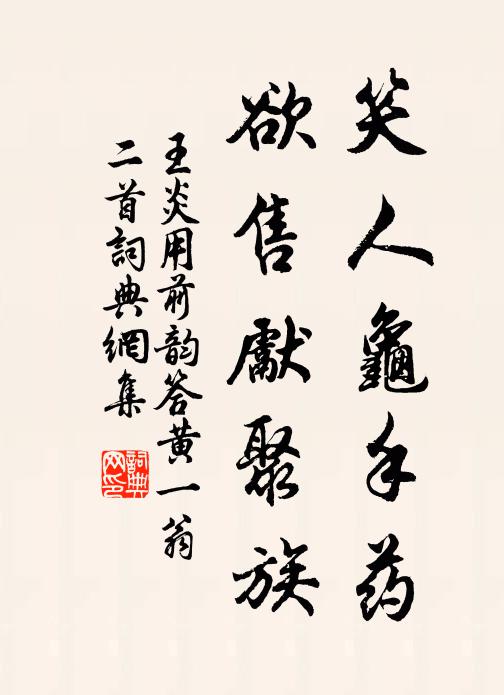 笑人龜手药
欲售獻聚族
王炎用前韵答黄一翁
二首詞典網集
詞典
网印